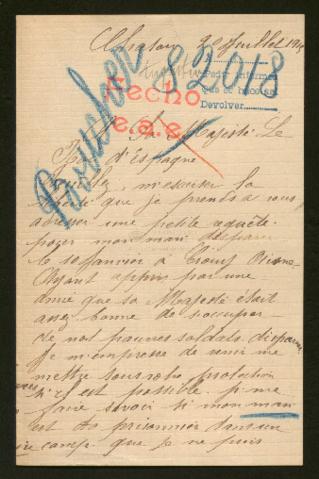 Chatou 20 Juillet 191
Bruchet
82048
Hecho
e.a.e.
Pedir informes
que se hacen
Devolver
A Sa Majesté Le
Roi d'Espagne
Veuillez m'excuser la
liberté que je prends de vous
adresser une petite requête
pour mon mari disparu
le 10 Janvier à Crouy Aisne
Ayant appris par une
amie que sa Majesté était
assez bonne de s'occuper
de nos pauvres soldats disparus
je m'empresse de venir me
mettre sous votre protection
s'il est possible de me
faire savoir si mon mari
est prisonnier dans un
camp que je ne puis